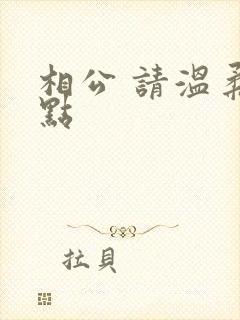 相公 請溫柔
點
拉貝